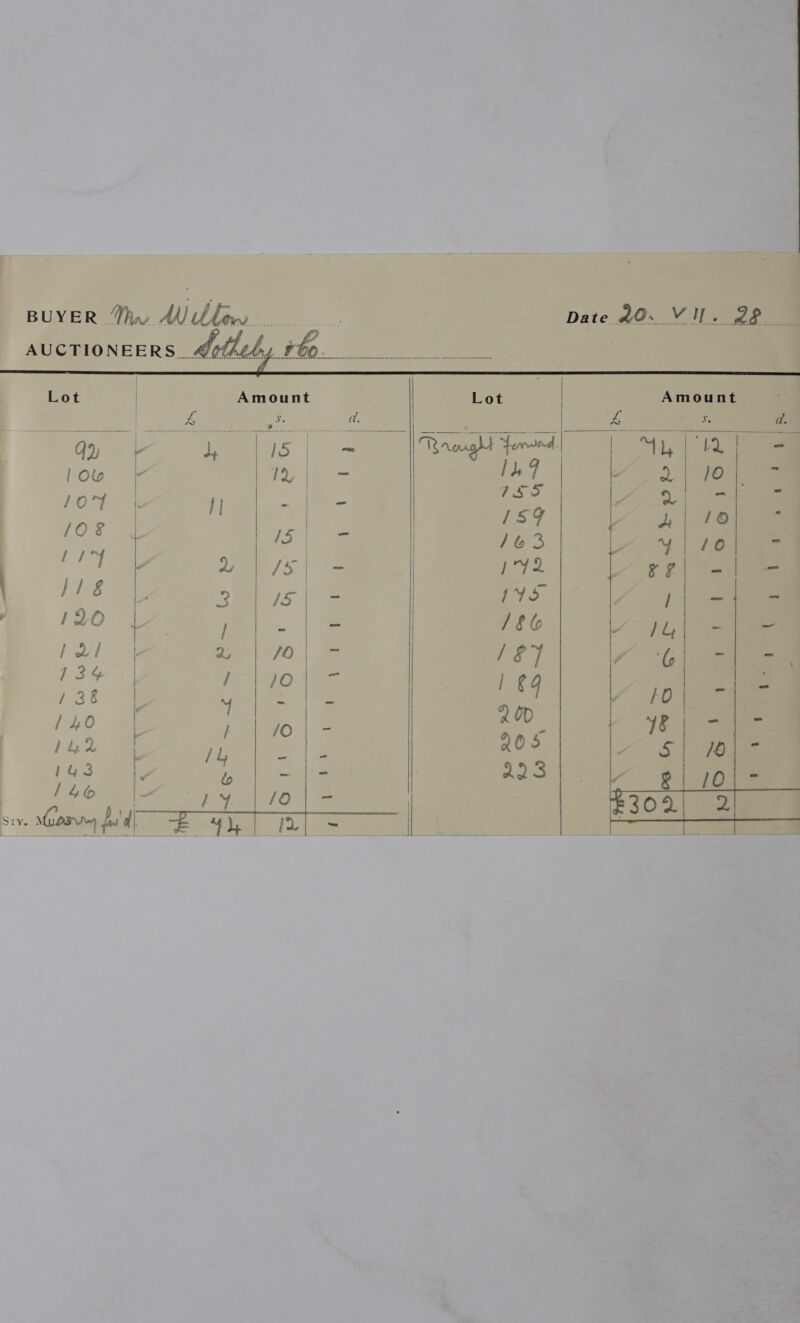 BUYER Date 20. VII. 28
AUCTIONEERS Sotheby & Co.
Lot Amount Lot Amount
£ s. d. £ s. d.
92 ✓ 4 15 - Brought forward 74 12 -
106 ✓ 12 - 149 ✓ 2 10 -
107 ✓ 11 - - 155 ✓ 2 - -
108 ✓ 15 - 159 ✓ 4 10 -
117 ✓ 2 15 - 163 ✓ 7 10 -
118 ✓ 3 15 - 172 ✓ 88 - -
120 ✓ 1 - - 175 ✓ 1 - -
121 ✓ 2 10 - 186 ✓ 14 - -
134 ✓ 1 10 - 187 ✓ 6 - -
138 ✓ 7 - - 189 ✓ 10 - -
140 ✓ 1 10 - 200 ✓ 78 - -
142 ✓ 14 - - 205 ✓ 5 10 -
143 ✓ 6 - - 223 ✓ 8 10 -
146 ✓ 17 10 - £302 2
£ 74 12 -